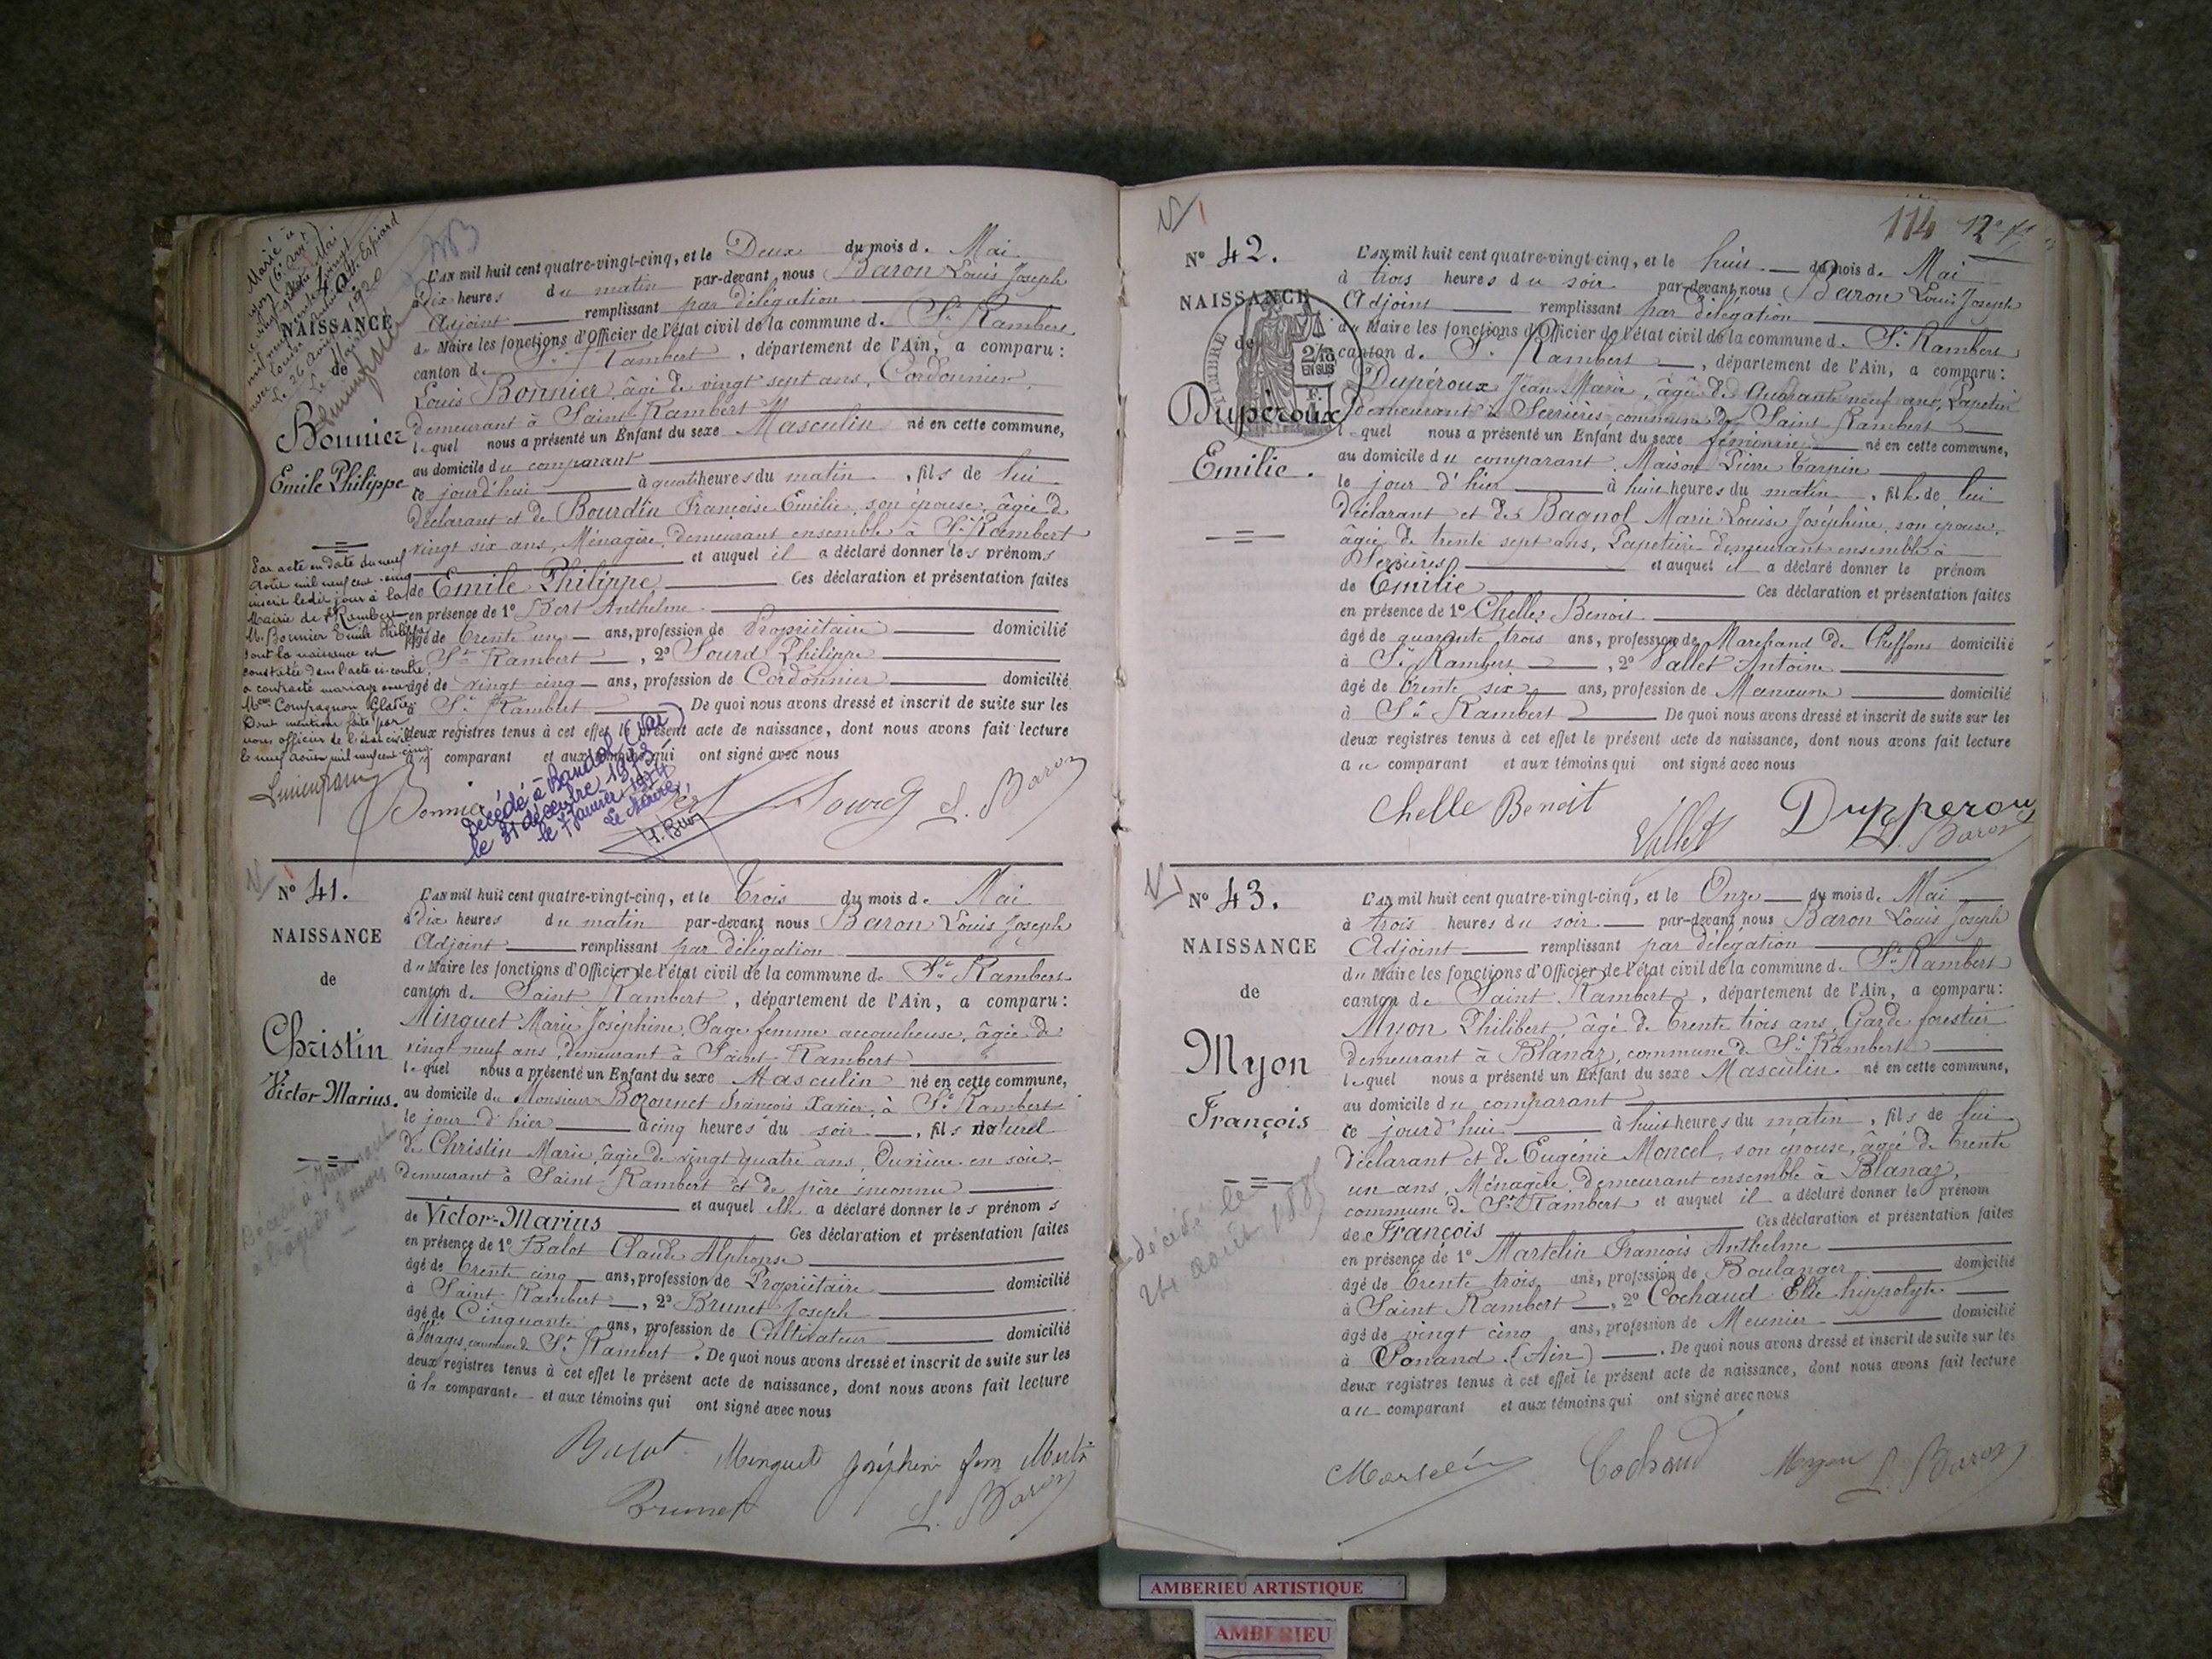 Marié à
NAISSANCE
de
Bonnier
Emile Philippe
L'an mil huit cent quatre-vingt-cinq, et le Deux du mois d. Mai
à dix heures du matin par-devant nous Baron Louis Joseph
Adjoint remplissant par délégation
du Maire les fonctions d'Officier de l'état civil de la commune d. St Rambert
canton de St Rambert, département de l'Ain, a comparu:
Louis Bonnier, âgé de vingt sept ans, Cordonnier,
demeurant à Saint-Rambert
lequel nous a présenté un Enfant du sexe Masculin né en cette commune,
au domicile du comparant
ce jourd'hui à quatre heures du matin, fils de lui
déclarant et de Bourdin Françoise Emilie, son épouse, âgée de
vingt six ans, Ménagère, demeurant ensemble à St Rambert
et auquel il a déclaré donner les prénoms
de Emile Philippe Ces déclaration et présentation faites
en présence de 1o Bert Anthelme
âgé de trente un ans, profession de Propriétaire domicilié
à St Rambert, 2o Sourd Philippe
âgé de vingt cinq ans, profession de Cordonnier domicilié
à St Rambert De quoi nous avons dressé et inscrit de suite sur les
deux registres tenus à cet effet le présent acte de naissance, dont nous avons fait lecture
au comparant et aux témoins qui ont signé avec nous
Par acte en date du neuf
Août mil neuf cent cinq
inscrit ledit jour à la
Mairie de St Rambert
Mr Bonnier Emile Philippe
dont la naissance est
constatée dans l'acte ci-contre
a contracté mariage avec
Melle Compagnon
Dont mention faite par
nous officier de l'état civil
le neuf Août mil neuf cent cinq.
Bonnier Bert Sourd L. Baron
Décédé à Bandol (Var)
le 31 décembre 1973
le 7 janvier 1974
Le Maire,
No 41.
NAISSANCE
de
Christin
Victor-Marius.
L'an mil huit cent quatre-vingt-cinq, et le trois du mois d. Mai
à dix heures du matin par-devant nous Baron Louis Joseph
Adjoint remplissant par délégation
du Maire les fonctions d'Officier de l'état civil de la commune de St Rambert
canton de Saint Rambert, département de l'Ain, a comparu:
Minguet Marie Joséphine, Sage femme accoucheuse, âgée de
vingt neuf ans, demeurant à Saint-Rambert
lequel nous a présenté un Enfant du sexe Masculin né en cette commune,
au domicile du Monsieur Bozonnet François Xavier, à St Rambert
le jour d'hier à cinq heures du soir, fils naturel
de Christin Marie, âgée de vingt quatre ans, Ouvrière en soie,
demeurant à Saint-Rambert et de père inconnu
et auquel elle a déclaré donner les prénoms
de Victor-Marius Ces déclaration et présentation faites
en présence de 1o Balot Claude Alphonse
âgé de trente cinq ans, profession de Propriétaire domicilié
à Saint Rambert, 2o Brunet Joseph
âgé de Cinquante ans, profession de Cultivateur domicilié
à commune de St Rambert. De quoi nous avons dressé et inscrit de suite sur les
deux registres tenus à cet effet le présent acte de naissance, dont nous avons fait lecture
à la comparante et aux témoins qui ont signé avec nous
Minguet Joséphine fem
Brunet L. Baron
114
No 42.
NAISSANCE
de
Dupéroux
Emilie.
TIMBRE
EN SUS
L'an mil huit cent quatre-vingt-cinq, et le huit du mois d. Mai
à trois heures du soir par-devant nous Baron Louis Joseph
Adjoint remplissant par délégation
du Maire les fonctions d'Officier de l'état civil de la commune d. St Rambert
canton d. St Rambert, département de l'Ain, a comparu:
Dupéroux Jean Marie, âgé de Quarante neuf ans, Papetier
demeurant à Serrières, commune de Saint Rambert
lequel nous a présenté un Enfant du sexe féminin né en cette commune,
au domicile du comparant, Maison Pierre Tarpin
le jour d'hier à huit heures du matin, fille de lui
déclarant et de Bagnol Marie Louise Joséphine, son épouse,
âgée de trente sept ans, Papetière demeurant ensemble à
Serrières et auquel il a déclaré donner le prénom
de Emilie Ces déclaration et présentation faites
en présence de 1o Chelle Benoit
âgé de quarante trois ans, profession de Marchand de Chiffons domicilié
à St Rambert, 2o Vallet Antoine
âgé de trente six ans, profession de Manœuvre domicilié
à St Rambert De quoi nous avons dressé et inscrit de suite sur les
deux registres tenus à cet effet le présent acte de naissance, dont nous avons fait lecture
au comparant et aux témoins qui ont signé avec nous
Chelle Benoit Vallet Dupperoux
L. Baron
No 43.
NAISSANCE
de
Myon
François
décédé le
24 août 1885
L'an mil huit cent quatre-vingt-cinq, et le Onze du mois d. Mai
à trois heures du soir par-devant nous Baron Louis Joseph
Adjoint remplissant par délégation
du Maire les fonctions d'Officier de l'état civil de la commune d. St Rambert
canton de Saint Rambert, département de l'Ain, a comparu:
Myon Philibert, âgé de trente trois ans, Garde forestier
demeurant à Blanaz, commune de St Rambert
lequel nous a présenté un Enfant du sexe Masculin né en cette commune,
au domicile du comparant
ce jourd'hui à huit heures du matin, fils de lui
déclarant et de Eugénie Moncel, son épouse, âgée de trente
un ans, Ménagère, demeurant ensemble à Blanaz,
commune de St Rambert et auquel il a déclaré donner le prénom
de François Ces déclaration et présentation faites
en présence de 1o Martelin François Anthelme
âgé de trente trois ans, profession de Boulanger domicilié
à Saint Rambert, 2o Cochaud Elie hippolyte
âgé de vingt cinq ans, profession de Meunier domicilié
à Conand (Ain). De quoi nous avons dressé et inscrit de suite sur les
deux registres tenus à cet effet le présent acte de naissance, dont nous avons fait lecture
au comparant et aux témoins qui ont signé avec nous
Martelin Cochaud Myon L. Baron
AMBERIEU ARTISTIQUE
AMBERIEU